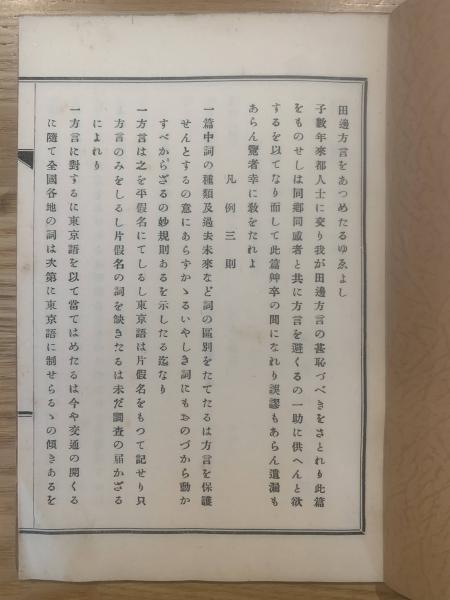 田邊方言をあつめたるゆゑよし
予數年來都人士に交り我が田邊方言の甚恥づべきをさとれり此篇
をものせしは同鄕同感者と共に方言を避くるの一助に供へんと欲
するを以てなり而して此篇艸卒の間になれり誤謬もあらん遺漏も
あらん覽者幸に敎をたれよ
凡例三則
一篇中詞の種類及過去未來など詞の區別をたてたるは方言を保護
せんとするの意にあらすかゝるいやしき詞にもおのづから動か
すべからざるの妙規則あるを示したる迄なり
一方言は之を平假名にてしるし東京語は片假名をもつて記せり只
方言のみをしるし片假名の詞を缺きたるは未だ調査の届かざる
によれり
一方言に對するに東京語を以て當てはめたるは今や交通の開くる
に隨て全國各地の詞は次第に東京語に制せらるゝの傾きあるを